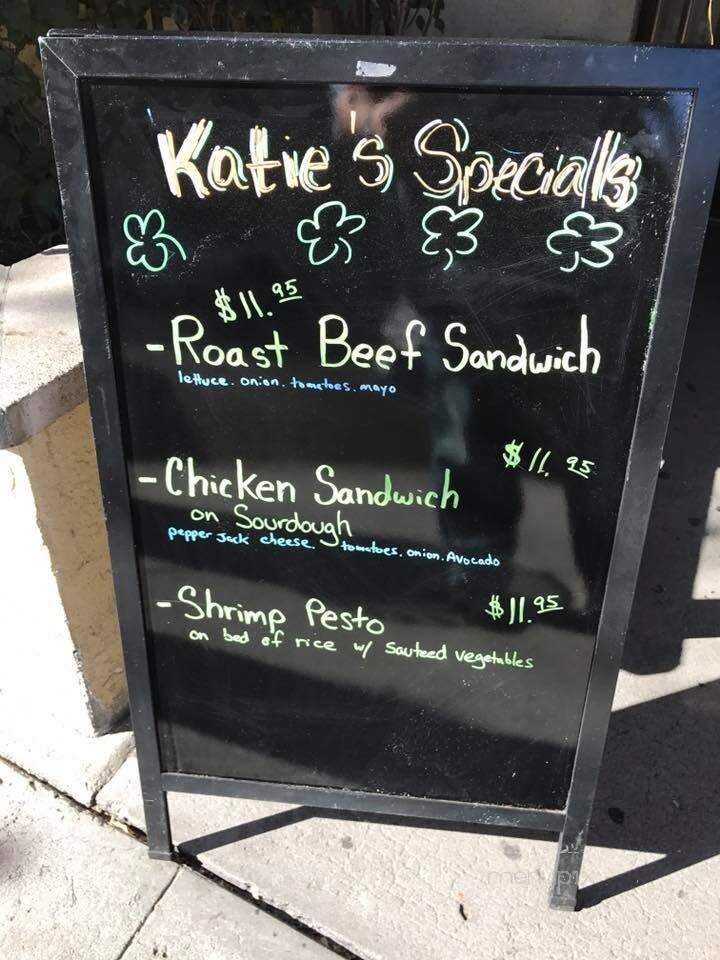 Katie's Specials
$11.95
- Roast Beef Sandwich
lettuce. onion. tomatoes. mayo
$11.95
- Chicken Sandwich
on Sourdough
pepper Jack cheese. tomatoes. onion. Avocado
- Shrimp Pesto $11.95
on bed of rice w/ Sauteed vegetables